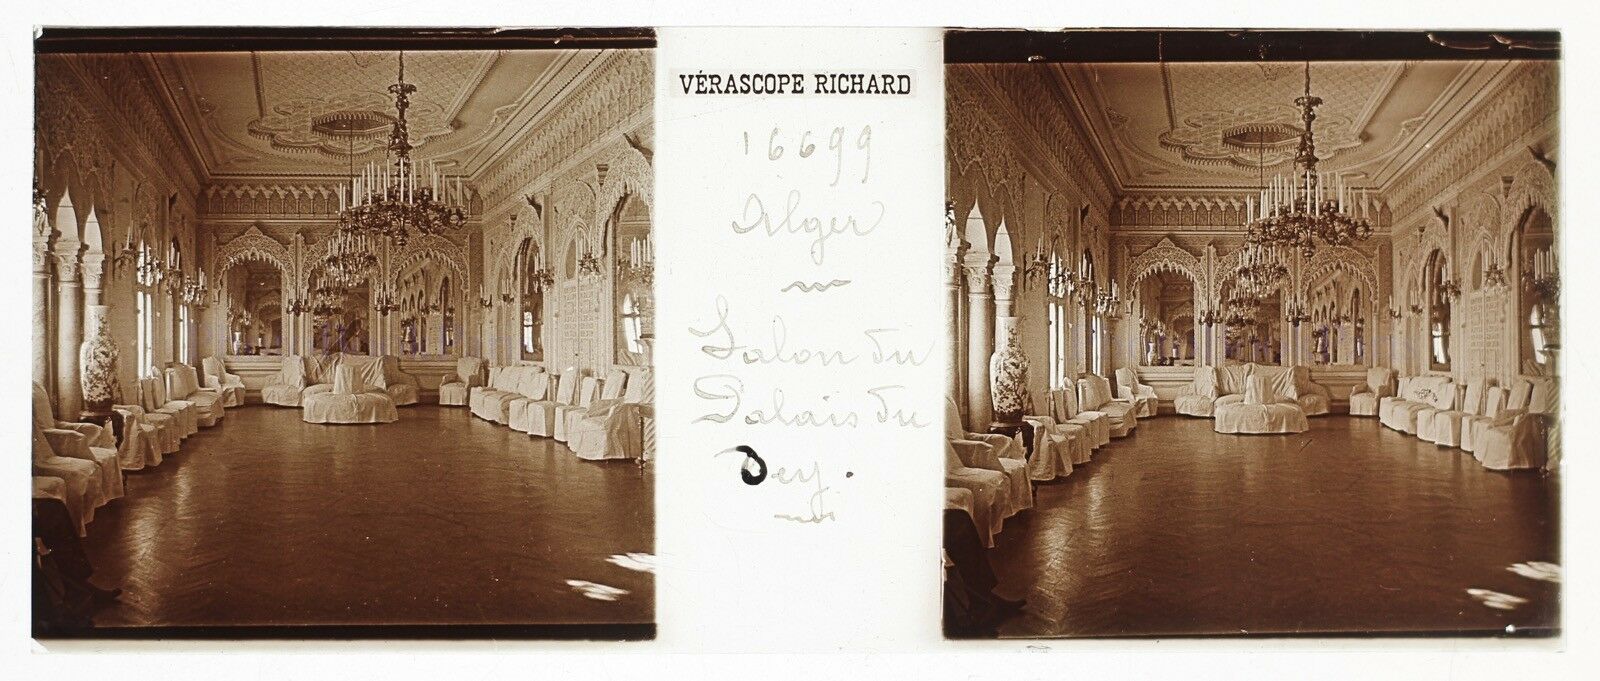 VÉRASCOPE RICHARD
16699
Alger
Salon du
Palais du
Dey.